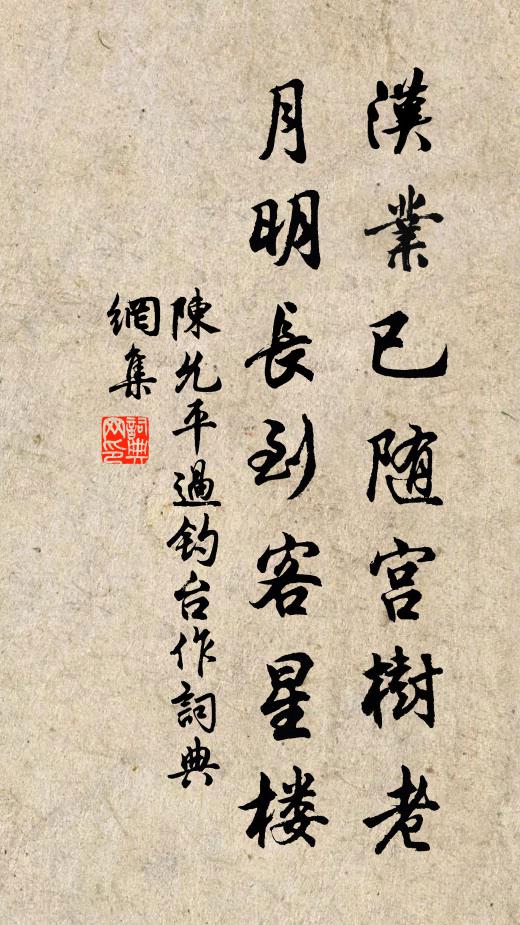 漢業已随宫樹老
月明長到客星楼
陳允平過钓台作詞典
網集
詞典
网印